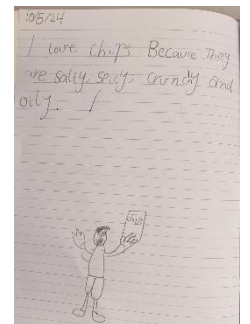 10/5/24
I love chips Because They
are salty, spicy, crunchy and
oily. /
chips